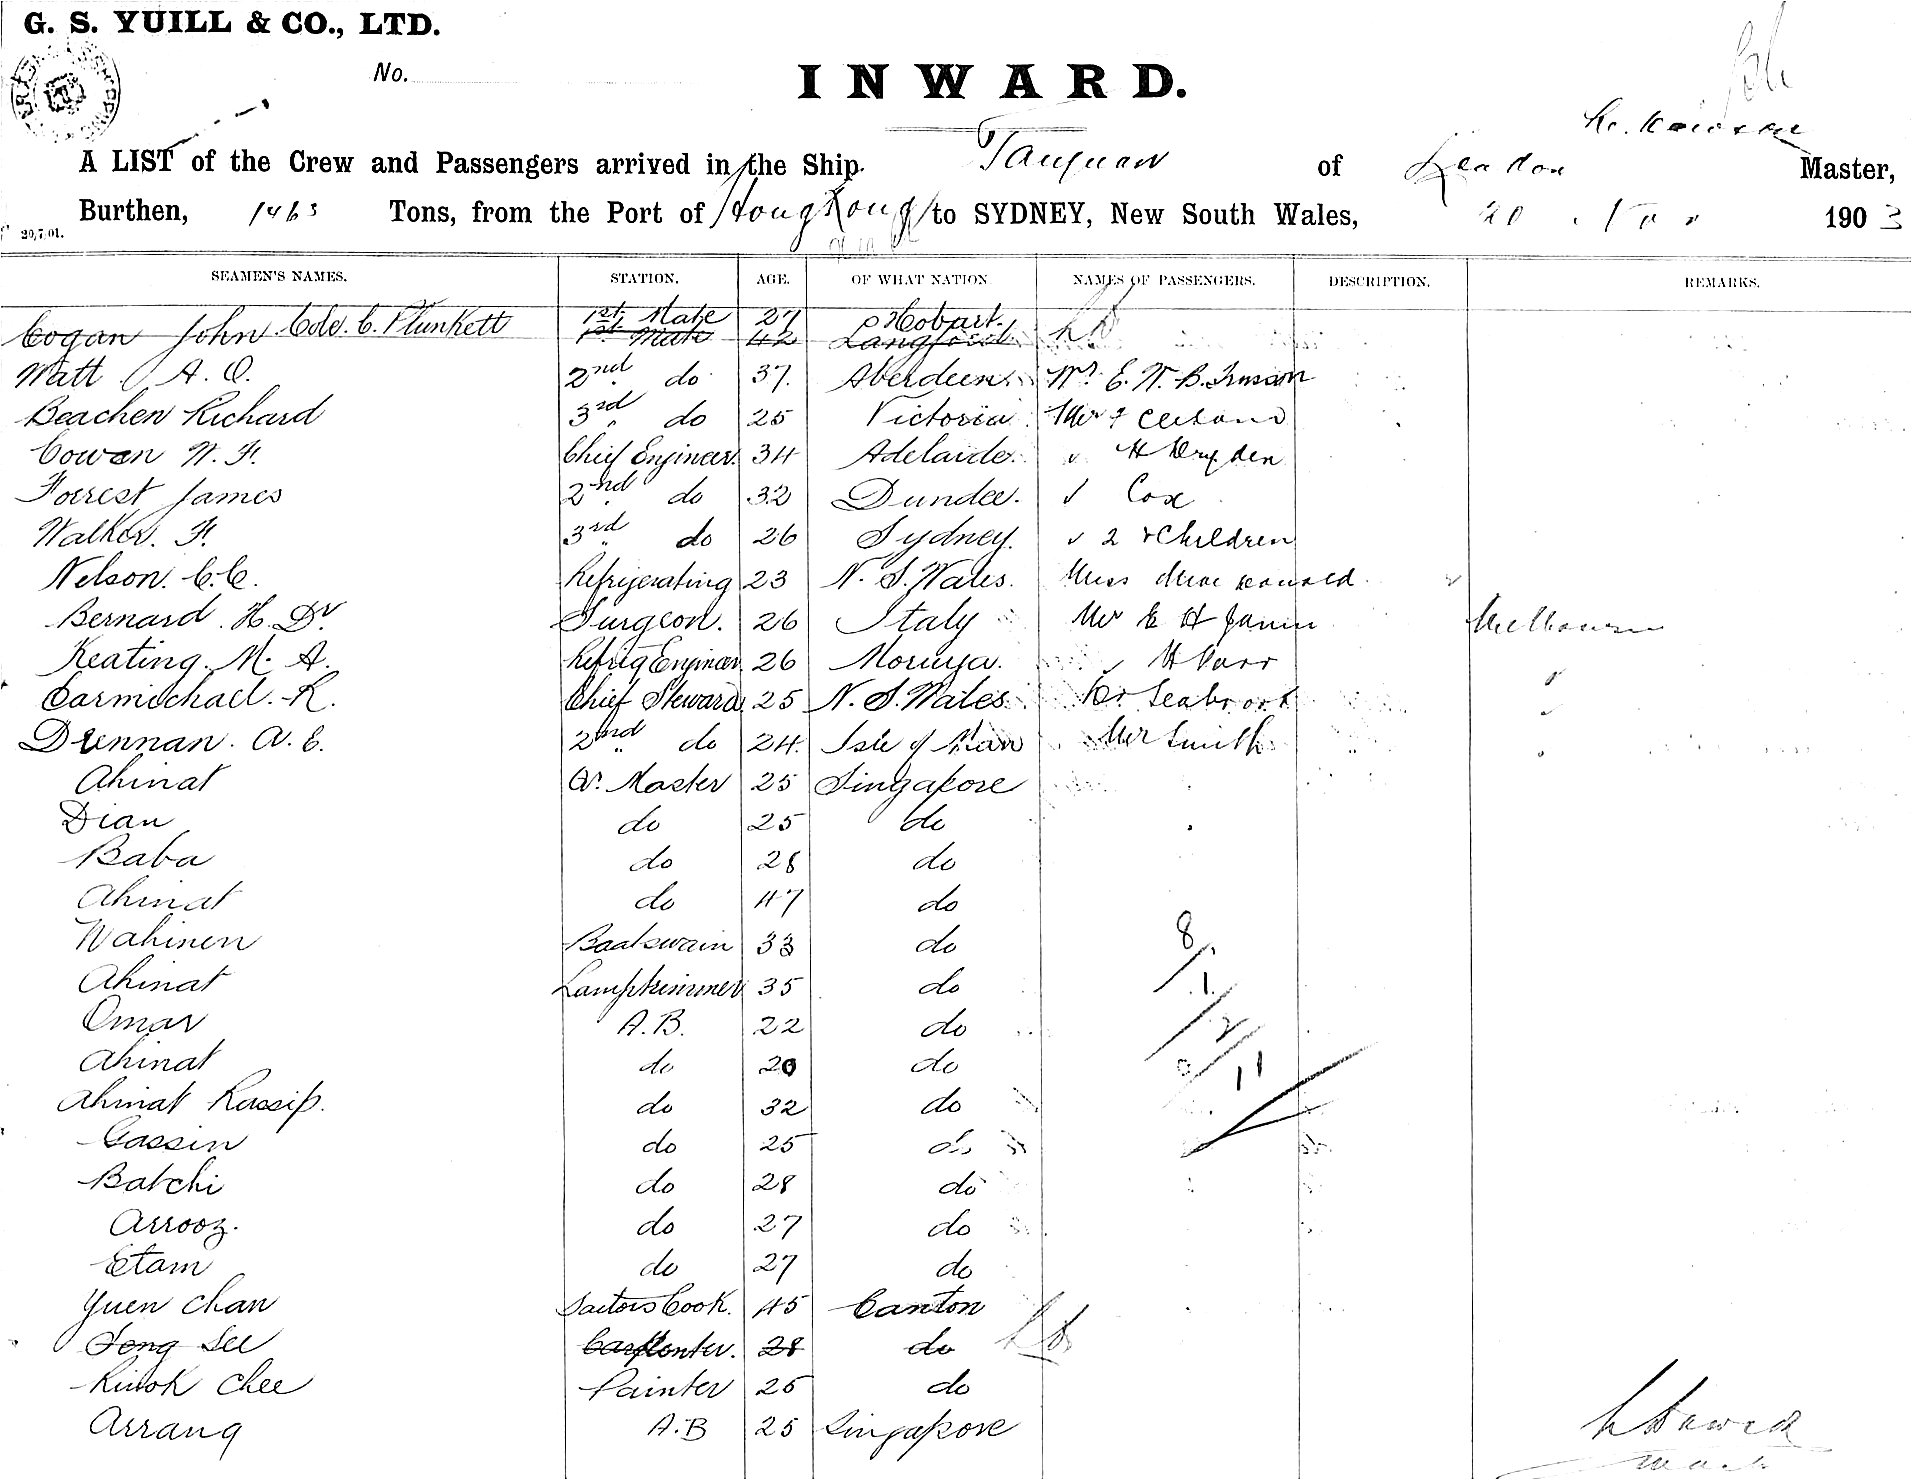 G. S. YUILL & CO., LTD.
No.
INWARD.
A LIST of the Crew and Passengers arrived in the Ship Taiyuan of London Master,
Burthen, 1463 Tons, from the Port of Hongkong to SYDNEY, New South Wales, 20 Nov 1903
20,7,01.
SEAMEN'S NAMES. STATION. AGE. OF WHAT NATION NAMES OF PASSENGERS. DESCRIPTION. REMARKS.
1st Mate 27 Hobart.
Cogan John Cole. C. Plunkett 1st Mate 42 Langford
Watt A. O. 2nd do 37. Aberdeen. Mr. E. W. B.
Beachen Richard 3rd do 25 Victoria Mr
Cowen W. F. Chief Engineer. 34 Adelaide. H Dryden
Forrest James 2nd do 32 Dundee. Cox
Walker. F. 3rd do 26 Sydney. 2 Children
Nelson. C. C. Refrigerating 23 N. S. Wales. Miss
Bernard. H. Dr. Surgeon. 26 Italy Mr E H Melbourne
Keating. M. A. Refrig Engineer 26 Moruya. H
Carmichael. R. Chief Steward 25 N. S. Wales Seabrook
Drennan. A. E. 2nd do 24. Isle of Man Mr Smith
Ahinat Qr. Master 25 Singapore
Dian do 25 do
Baba do 28 do
Ahinat do 47 do
Wahinen Boatswain 33 do
8
Ahinat Lamptrimmer 35 do
1
Omar A.B. 22 do
2
Ahinat do 20 do
11
Ahinat Rassip. do 32 do
Gassin do 25 do
Batchi do 28 do
Arrooz. do 27 do
Etam do 27 do
Yuen Chan Sailors Cook. 45 Canton
Fong See Carpenter. 28 do
Kwok Chee Painter 25 do
Arrang A.B 25 Singapore